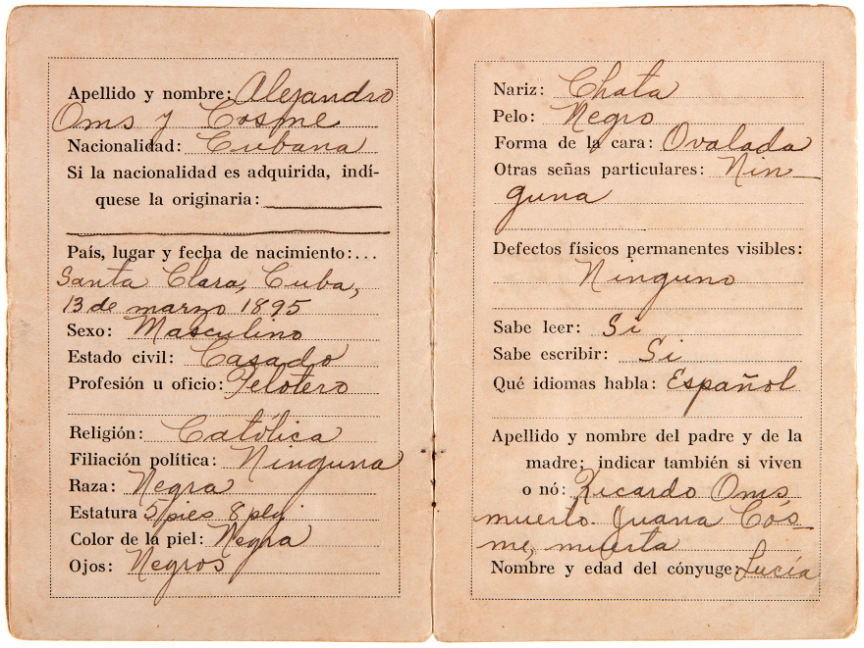 Apellido y nombre: Alejandro
Oms y Cosme
Nacionalidad: Cubana
Si la nacionalidad es adquirida, indí-
quese la originaria:
País, lugar y fecha de nacimiento:...
Santa Clara, Cuba,
13 de marzo 1895
Sexo: Masculino
Estado civil: Casado
Profesión u oficio: Pelotero
Religión: Católica
Filiación política: Ninguna
Raza: Negra
Estatura 5 pies 8 plg.
Color de la piel: Negra
Ojos: Negros
Nariz: Chata
Pelo: Negro
Forma de la cara: Ovalada
Otras señas particulares: Nin-
guna
Defectos físicos permanentes visibles:
Ninguno
Sabe leer: Si
Sabe escribir: Si
Qué idiomas habla: Español
Apellido y nombre del padre y de la
madre; indicar también si viven
o nó: Ricardo Oms,
muerto. Juana Cós-
me, muerta
Nombre y edad del cónyuge: Lucía